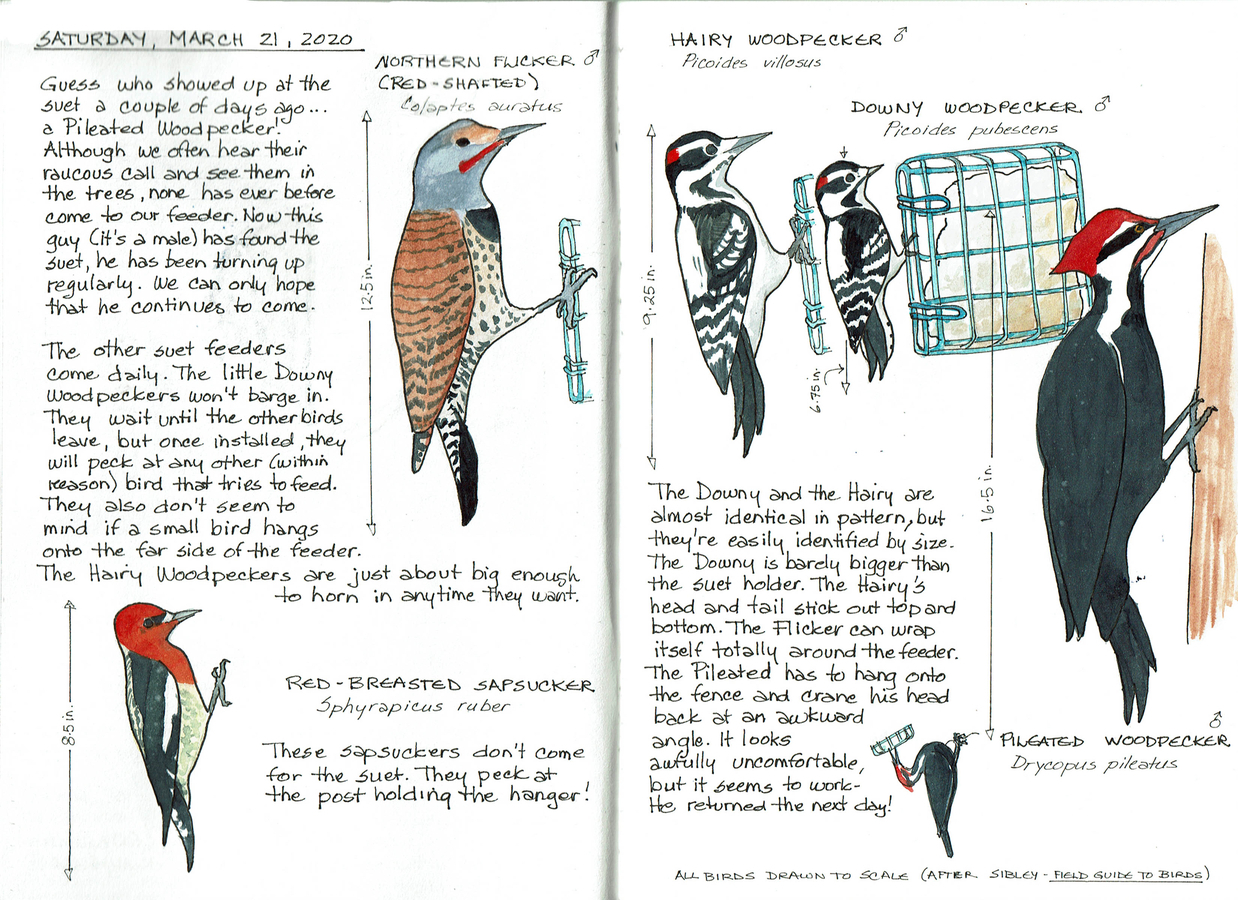 SATURDAY, MARCH 21, 2020
Guess who showed up at the
suet a couple of days ago...
a Pileated Woodpecker!
Although we often hear their
raucous call and see them in
the trees, none has ever before
come to our feeder. Now this
guy (it's a male) has found the
suet, he has been turning up
regularly. We can only hope
that he continues to come.
The other suet feeders
come daily. The little Downy
Woodpeckers won't barge in.
They wait until the other birds
leave, but once installed, they
will peck at any other (within
reason) bird that tries to feed.
They also don't seem to
mind if a small bird hangs
onto the far side of the feeder.
The Hairy Woodpeckers are just about big enough
to horn in anytime they want.
NORTHERN FLICKER ♂
(RED-SHAFTED)
Colaptes auratus
12.5 in.
8.5 in.
RED-BREASTED SAPSUCKER
Sphyrapicus ruber
These sapsuckers don't come
for the suet. They peck at
the post holding the hanger!
HAIRY WOODPECKER ♂
Picoides villosus
DOWNY WOODPECKER ♂
Picoides pubescens
9.25 in.
6.75 in.
16.5 in.
The Downy and the Hairy are
almost identical in pattern, but
they're easily identified by size.
The Downy is barely bigger than
the suet holder. The Hairy's
head and tail stick out top and
bottom. The Flicker can wrap
itself totally around the feeder.
The Pileated has to hang onto
the fence and crane his head
back at an awkward
angle. It looks
awfully uncomfortable,
but it seems to work-
He returned the next day!
♂
PILEATED WOODPECKER
Drycopus pileatus
ALL BIRDS DRAWN TO SCALE (AFTER SIBLEY - FIELD GUIDE TO BIRDS)